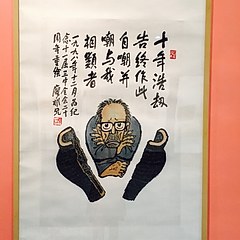 十年浩劫
告终作此
自嘲并
嘲与我
相类者
一九九八年十二月为纪
念十一届三中全会二十
周年重绘 廖冰兄